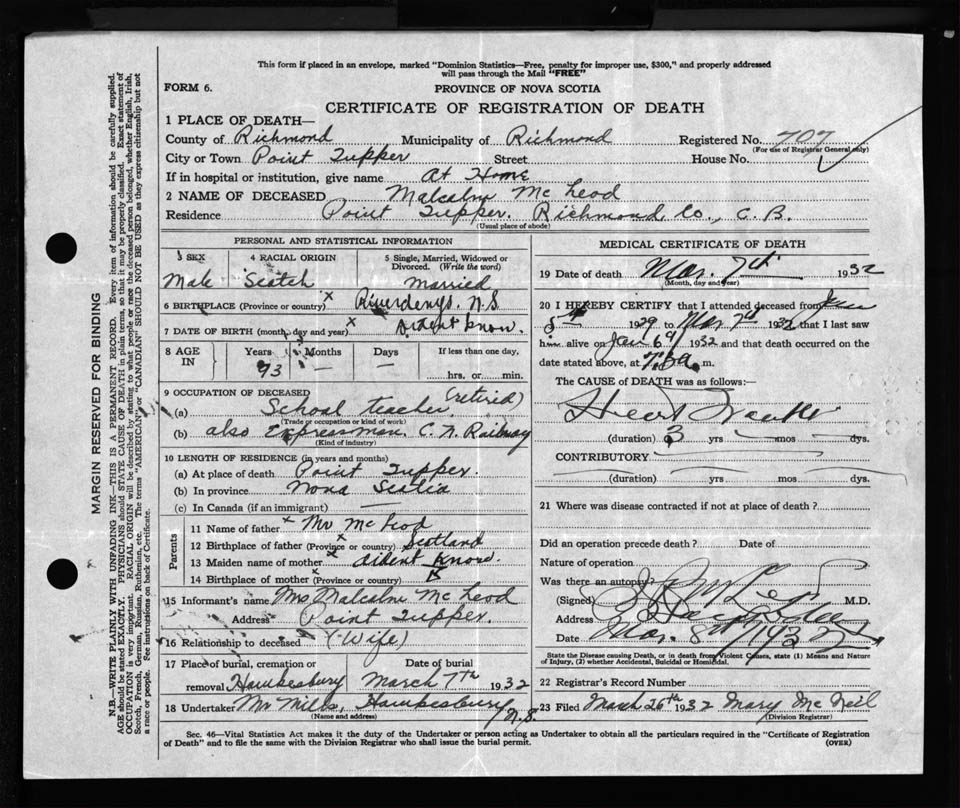 This form if placed in an envelope, marked "Dominion Statistics—Free, penalty for improper use, $300," and properly addressed
will pass through the Mail "FREE"
FORM 6.
PROVINCE OF NOVA SCOTIA
CERTIFICATE OF REGISTRATION OF DEATH
1 PLACE OF DEATH—
County of Richmond Municipality of Richmond Registered No. 707
(For use of Registrar General only)
City or Town Point Tupper Street House No.
If in hospital or institution, give name At Home
2 NAME OF DECEASED Malcolm Mc Leod
Residence Point Tupper. Richmond Co., C. B.
(Usual place of abode)
PERSONAL AND STATISTICAL INFORMATION
3 SEX 4 RACIAL ORIGIN 5 Single, Married, Widowed or Divorced. (Write the word)
Male Scotch Married
6 BIRTHPLACE (Province or country) Riverdenys. N.S.
7 DATE OF BIRTH (month, day and year) dident know.
8 AGE IN Years Months Days If less than one day,
73 — — hrs. or min.
9 OCCUPATION OF DECEASED (retired)
(a) School teacher
(Trade or occupation or kind of work)
(b) also Expressman. C. N. Railway
(Kind of industry)
10 LENGTH OF RESIDENCE (in years and months)
(a) At place of death Point Tupper.
(b) In province Nova Scotia
(c) In Canada (if immigrant)
Parents
11 Name of father Mr Mc Leod
12 Birthplace of father (Province or country) Scotland
13 Maiden name of mother dident know
14 Birthplace of mother (Province or country)
15 Informant's name Mrs Malcolm Mc Leod
Address Point Tupper.
16 Relationship to deceased (Wife)
17 Place of burial, cremation or removal Hawkesbury Date of burial March 7th 1932
18 Undertaker Mr Mills, Hawkesbury N.S.
(Name and address)
MEDICAL CERTIFICATE OF DEATH
19 Date of death Mar. 7th 1932
(Month, day and year)
20 I HEREBY CERTIFY that I attended deceased from
5th 1929 to Mar 7th 1932 that I last saw
him alive on Jan 6th 1932 and that death occurred on the
date stated above, at m.
The CAUSE OF DEATH was as follows:
Heart
(duration) 3 yrs mos dys.
CONTRIBUTORY
(duration) yrs mos dys.
21 Where was disease contracted if not at place of death?
Did an operation precede death? Date of
Nature of operation
Was there an autopsy?
(Signed) M.D.
Address
Date Mar. 8th 1932
State the Disease causing Death, or in death from Violent Causes, state (1) Means and Nature
of Injury, (2) whether Accidental, Suicidal or Homicidal.
22 Registrar's Record Number
23 Filed March 26th 1932 Mary Mc Neil
(Division Registrar)
Sec. 46—Vital Statistics Act makes it the duty of the Undertaker or person acting as Undertaker to obtain all the particulars required in the "Certificate of Registration
of Death" and to file the same with the Division Registrar who shall issue the burial permit.
(OVER)
MARGIN RESERVED FOR BINDING
N.B.—WRITE PLAINLY WITH UNFADING INK—THIS IS A PERMANENT RECORD. Every item of information should be carefully supplied.
AGE should be stated EXACTLY. PHYSICIANS should STATE CAUSE OF DEATH in plain terms, so that it may be properly classified. Exact statement of
OCCUPATION is very important. RACIAL ORIGIN will be described by stating to what people or race the deceased person belonged, whether English, Irish,
Scotch, French, German, Russian, Ruthenian, etc. The terms "AMERICAN" or "CANADIAN" SHOULD NOT BE USED as they express citizenship but not
a race or people. See instructions on back of Certificate.